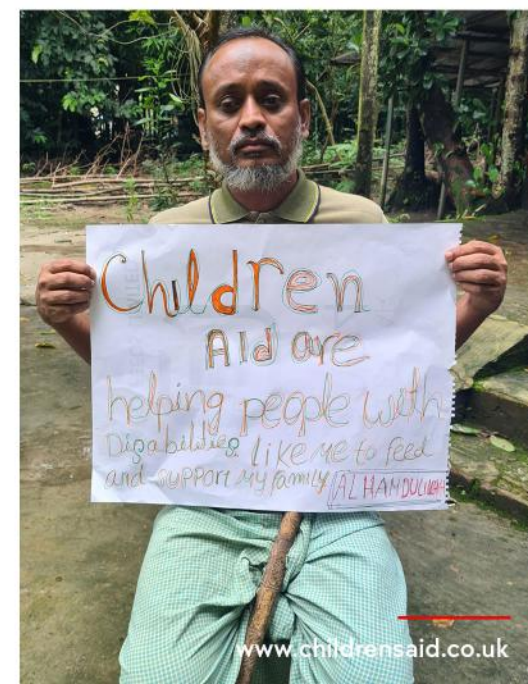 Children
Aid are
helping people with
Disabilities like me to feed
and support my family ALHAMDULILLAH
www.childrensaid.co.uk